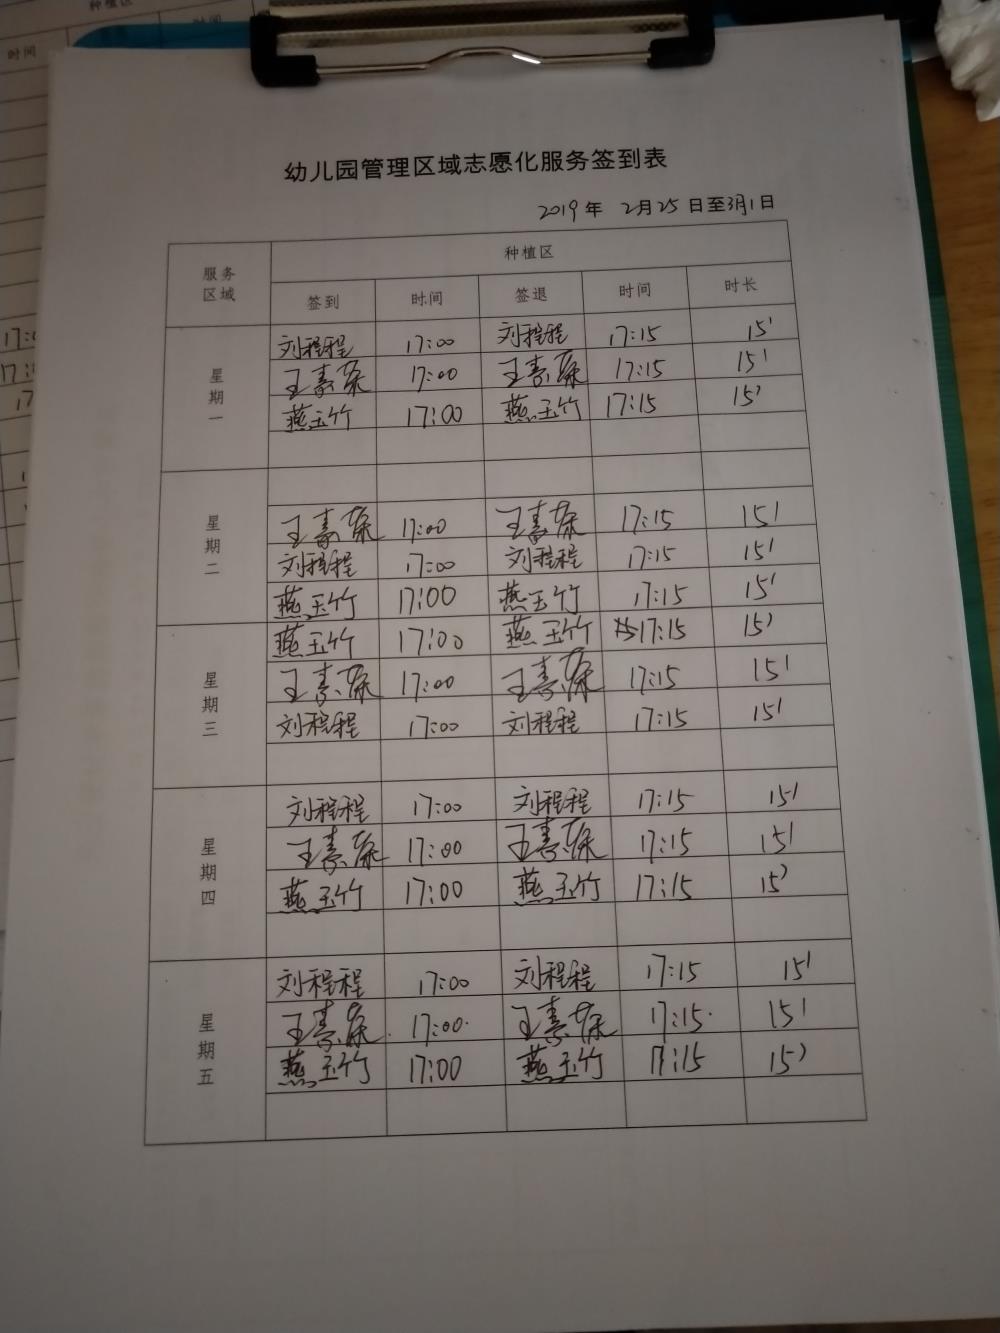 种植区
时间
时间
幼儿园管理区域志愿化服务签到表
2019年 2月25日至3月1日
服务区域 种植区
签到 时间 签退 时间 时长
星期一
刘程程 17:00 刘程程 17:15 15'
王 17:00 王 17:15 15'
燕玉竹 17:00 燕玉竹 17:15 15'
星期二
王 17:00 王 17:15 15'
刘程程 17:00 刘程程 17:15 15'
燕玉竹 17:00 燕玉竹 17:15 15'
星期三
燕玉竹 17:00 燕玉竹 17:15 15'
王 17:00 王 17:15 15'
刘程程 17:00 刘程程 17:15 15'
星期四
刘程程 17:00 刘程程 17:15 15'
王 17:00 王 17:15 15'
燕玉竹 17:00 燕玉竹 17:15 15'
星期五
刘程程 17:00 刘程程 17:15 15'
王 17:00 王 17:15 15'
燕玉竹 17:00 燕玉竹 17:15 15'